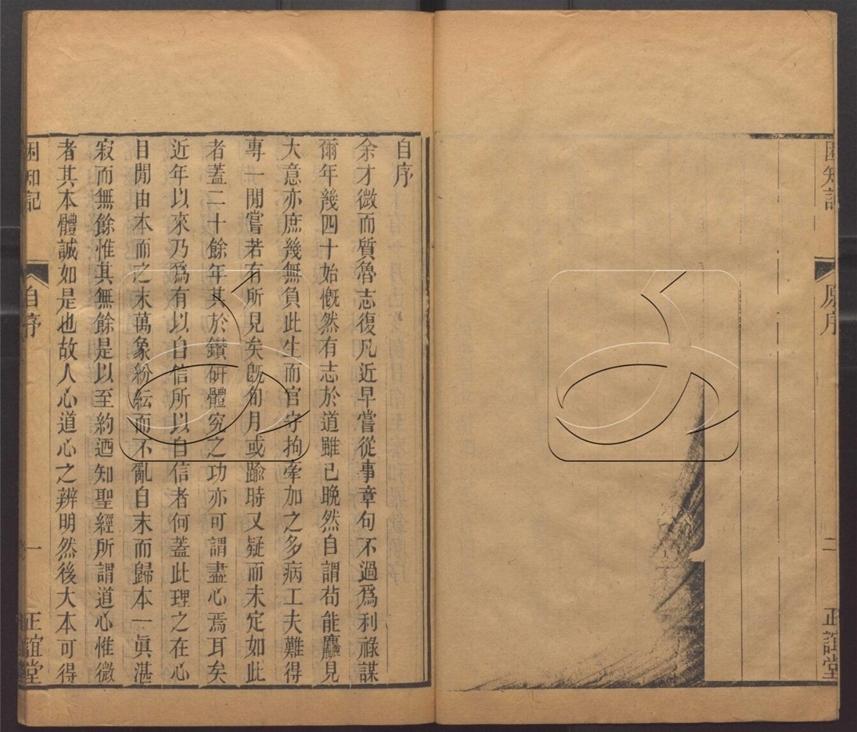 困知記
原序
二
正誼堂
自序
余才微而質魯志復凡近早嘗從事章句不過爲利祿謀
爾年幾四十始慨然有志於道雖已晚然自謂苟能麤見
大意亦庶幾無負此生而官守拘牽加之多病工夫難得
專一閒嘗若有所見矣旣旬月或踰時又疑而未定如此
者蓋二十餘年其於鑽研體究之功亦可謂盡心焉耳矣
近年以來乃爲有以自信所以自信者何蓋此理之在心
目閒由本而之末萬象紛紜而不亂自末而歸本一眞湛
寂而無餘惟其無餘是以至約迺知聖經所謂道心惟微
者其本體誠如是也故人心道心之辨明然後大本可得
困知記
自序
一
正誼堂